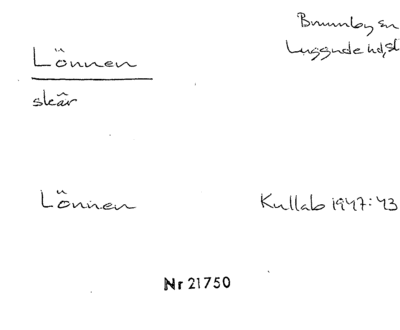 Brunnby sn
Luggude hd, sk
Lönnen
skär
Lönnen Kullab 1947:43
Nr 21750